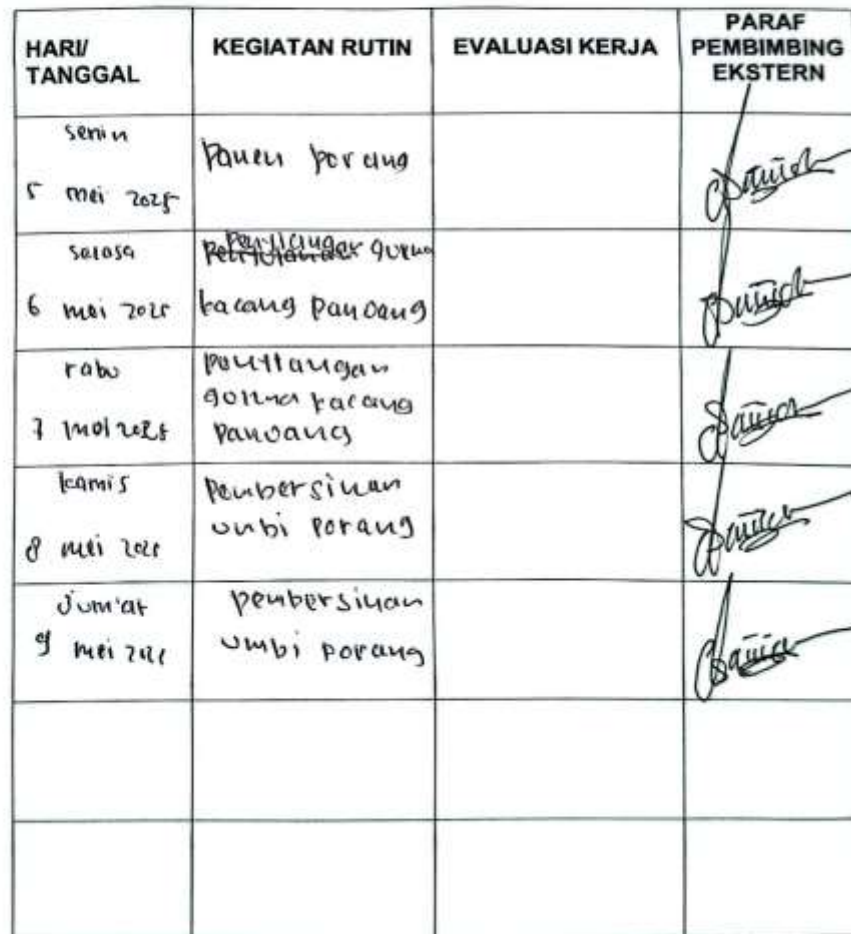 HARI/ TANGGAL
KEGIATAN RUTIN
EVALUASI KERJA
PARAF PEMBIMBING EKSTERN
senin
5 mei 2025
Panen porang
selasa
6 mei 2025
penyiangan gulma
kacang panjang
rabu
7 mei 2025
penyiangan
gulma kacang
panjang
kamis
8 mei 2025
pembersihan
umbi porang
Jum'at
9 mei 2025
pembersihan
umbi porang